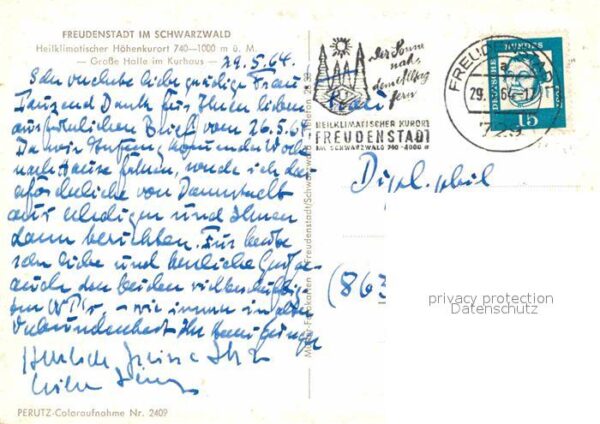 FREUDENSTADT IM SCHWARZWALD
Heilklimatischer Höhenkurort 740—1000 m ü. M.
— Große Halle im Kurhaus —
29.5.64.
Sehr verehrte liebe gnädige Frau
Tausend Dank für Ihren lieben
ausführlichen Brief vom 26.5.6
Da wir Anfang kommender Woche
nach Hause fahren, werde ich das
erforderliche von Darmstadt
aus erledigen und Ihnen
dann berichten. Für heute
sehr liebe und herzliche Grüße
auch den beiden
— wie immer in alter
Verbundenheit Ihr
Herzliche Grüße Ihre
Frau
Dipl. phil
(863
Der Sonne
nah,
dem Alltag
fern
HEILKLIMATISCHER KURORT
FREUDENSTADT
IM SCHWARZWALD 740-1000 m
FREUDENSTADT
a
29. 64-17
729
DEUTSCHE BUNDESPOST
15
Freudenstadt/Schwarzwald
privacy protection
Datenschutz
PERUTZ-Coloraufnahme Nr. 2409